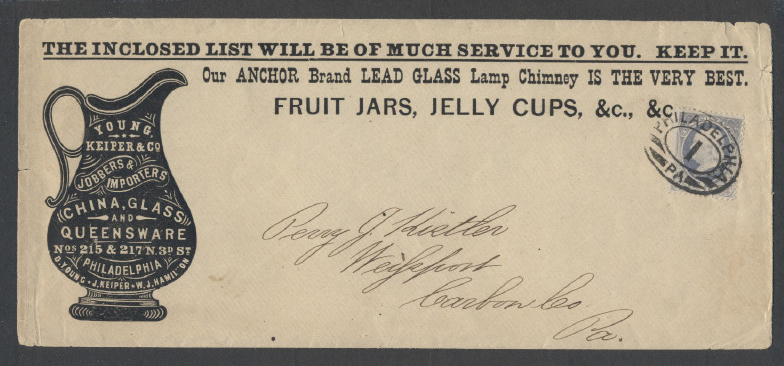 THE INCLOSED LIST WILL BE OF MUCH SERVICE TO YOU. KEEP IT.
Our ANCHOR Brand LEAD GLASS Lamp Chimney IS THE VERY BEST.
FRUIT JARS, JELLY CUPS, &c., &c.
YOUNG,
KEIPER & CO
JOBBERS &
IMPORTERS
CHINA, GLASS
AND
QUEENSWARE
Nos 215 & 217 N. 3D ST
PHILADELPHIA
D. YOUNG · J. KEIPER · W. J. HAMILTON
PHILADELPHIA
1
PA
Perry J. Kistler
Weissport
Carbon Co
Pa.